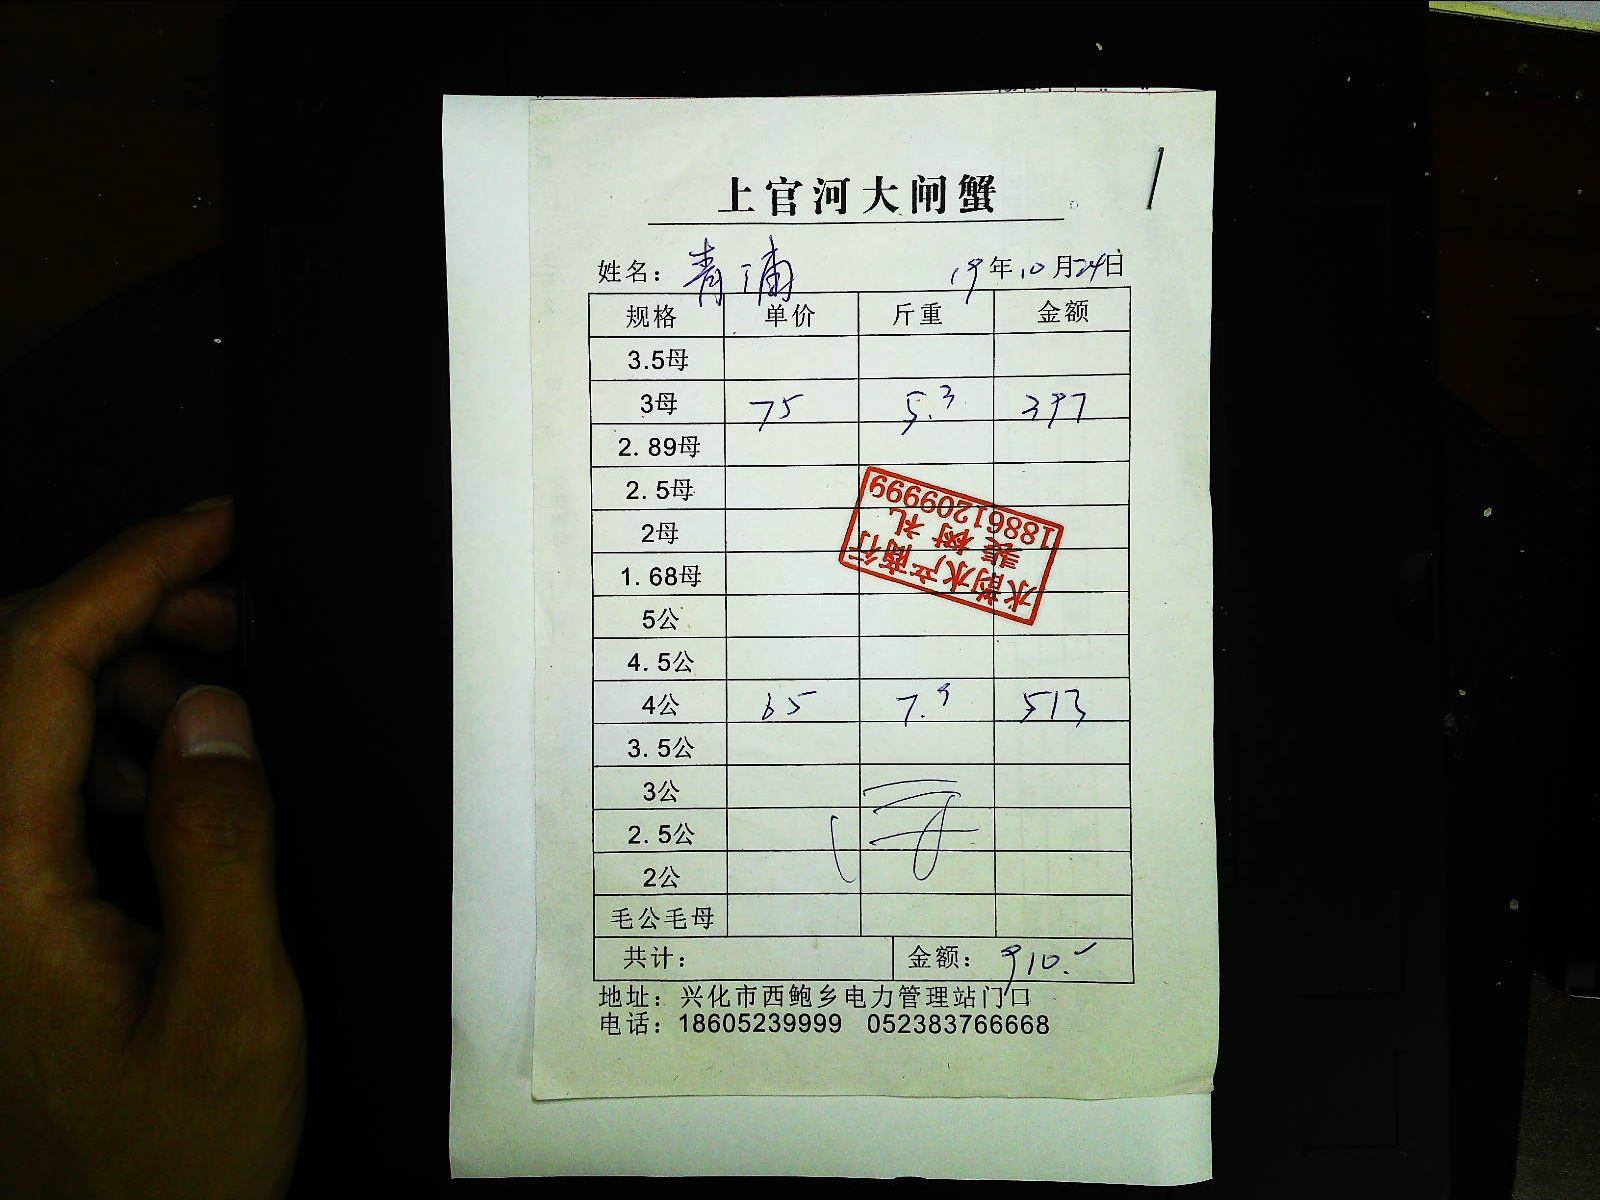 上官河大闸蟹
姓名：青浦 19年10月24日
规格 单价 斤重 金额
3.5母
3母 75 5.3 397
2.89母
2.5母
2母
1.68母
5公
4.5公
4公 65 7.9 513
3.5公
3公
2.5公
2公
毛公毛母
共计： 金额：910.
地址：兴化市西鲍乡电力管理站门口
电话：18605239999 052383766668
水韵水产商行
树礼
18861209999